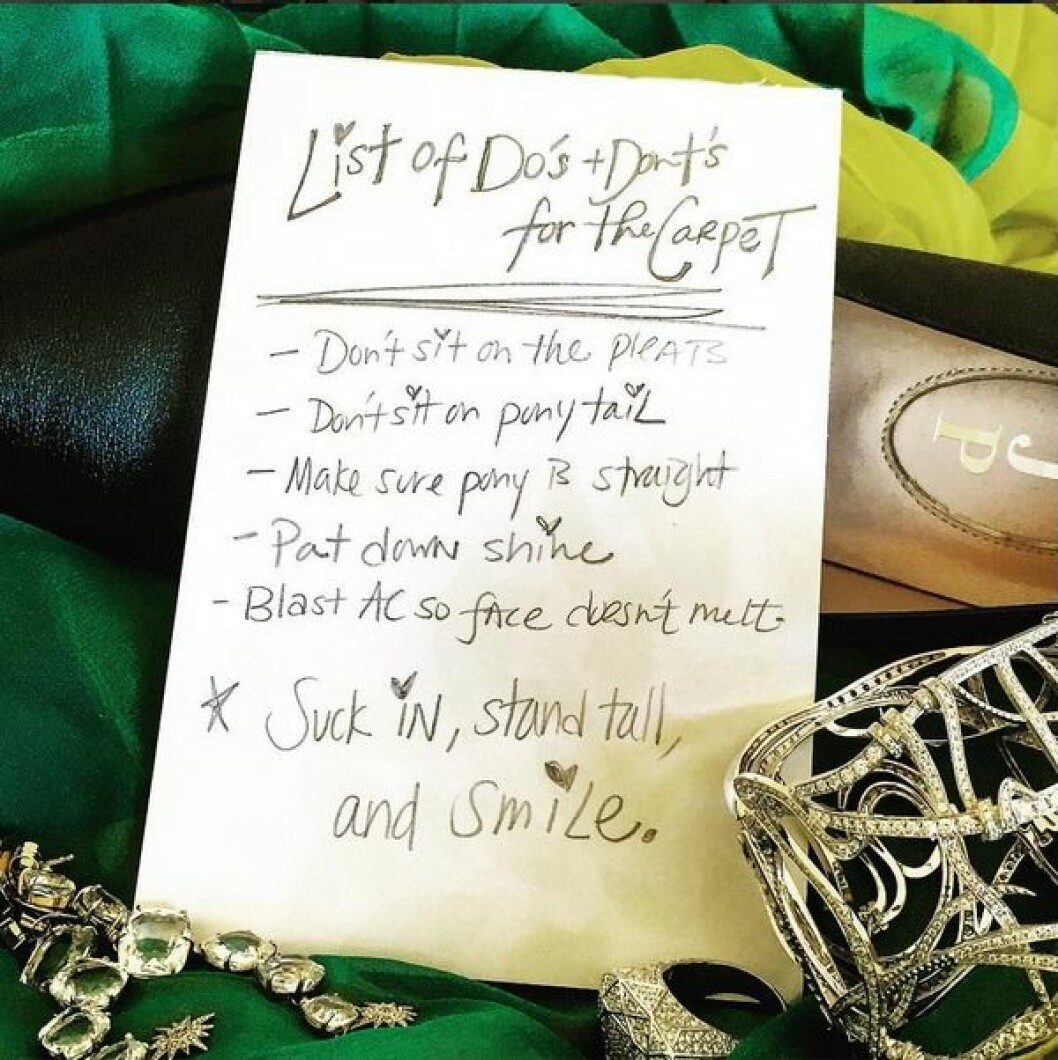 List of Do's + Dont's
for the Carpet
- Don't sit on the pleats
- Don't sit on pony tail
- Make sure pony is straight
- Pat down shine
- Blast AC so face doesn't melt.
* Suck in, stand tall,
and smile.
JP